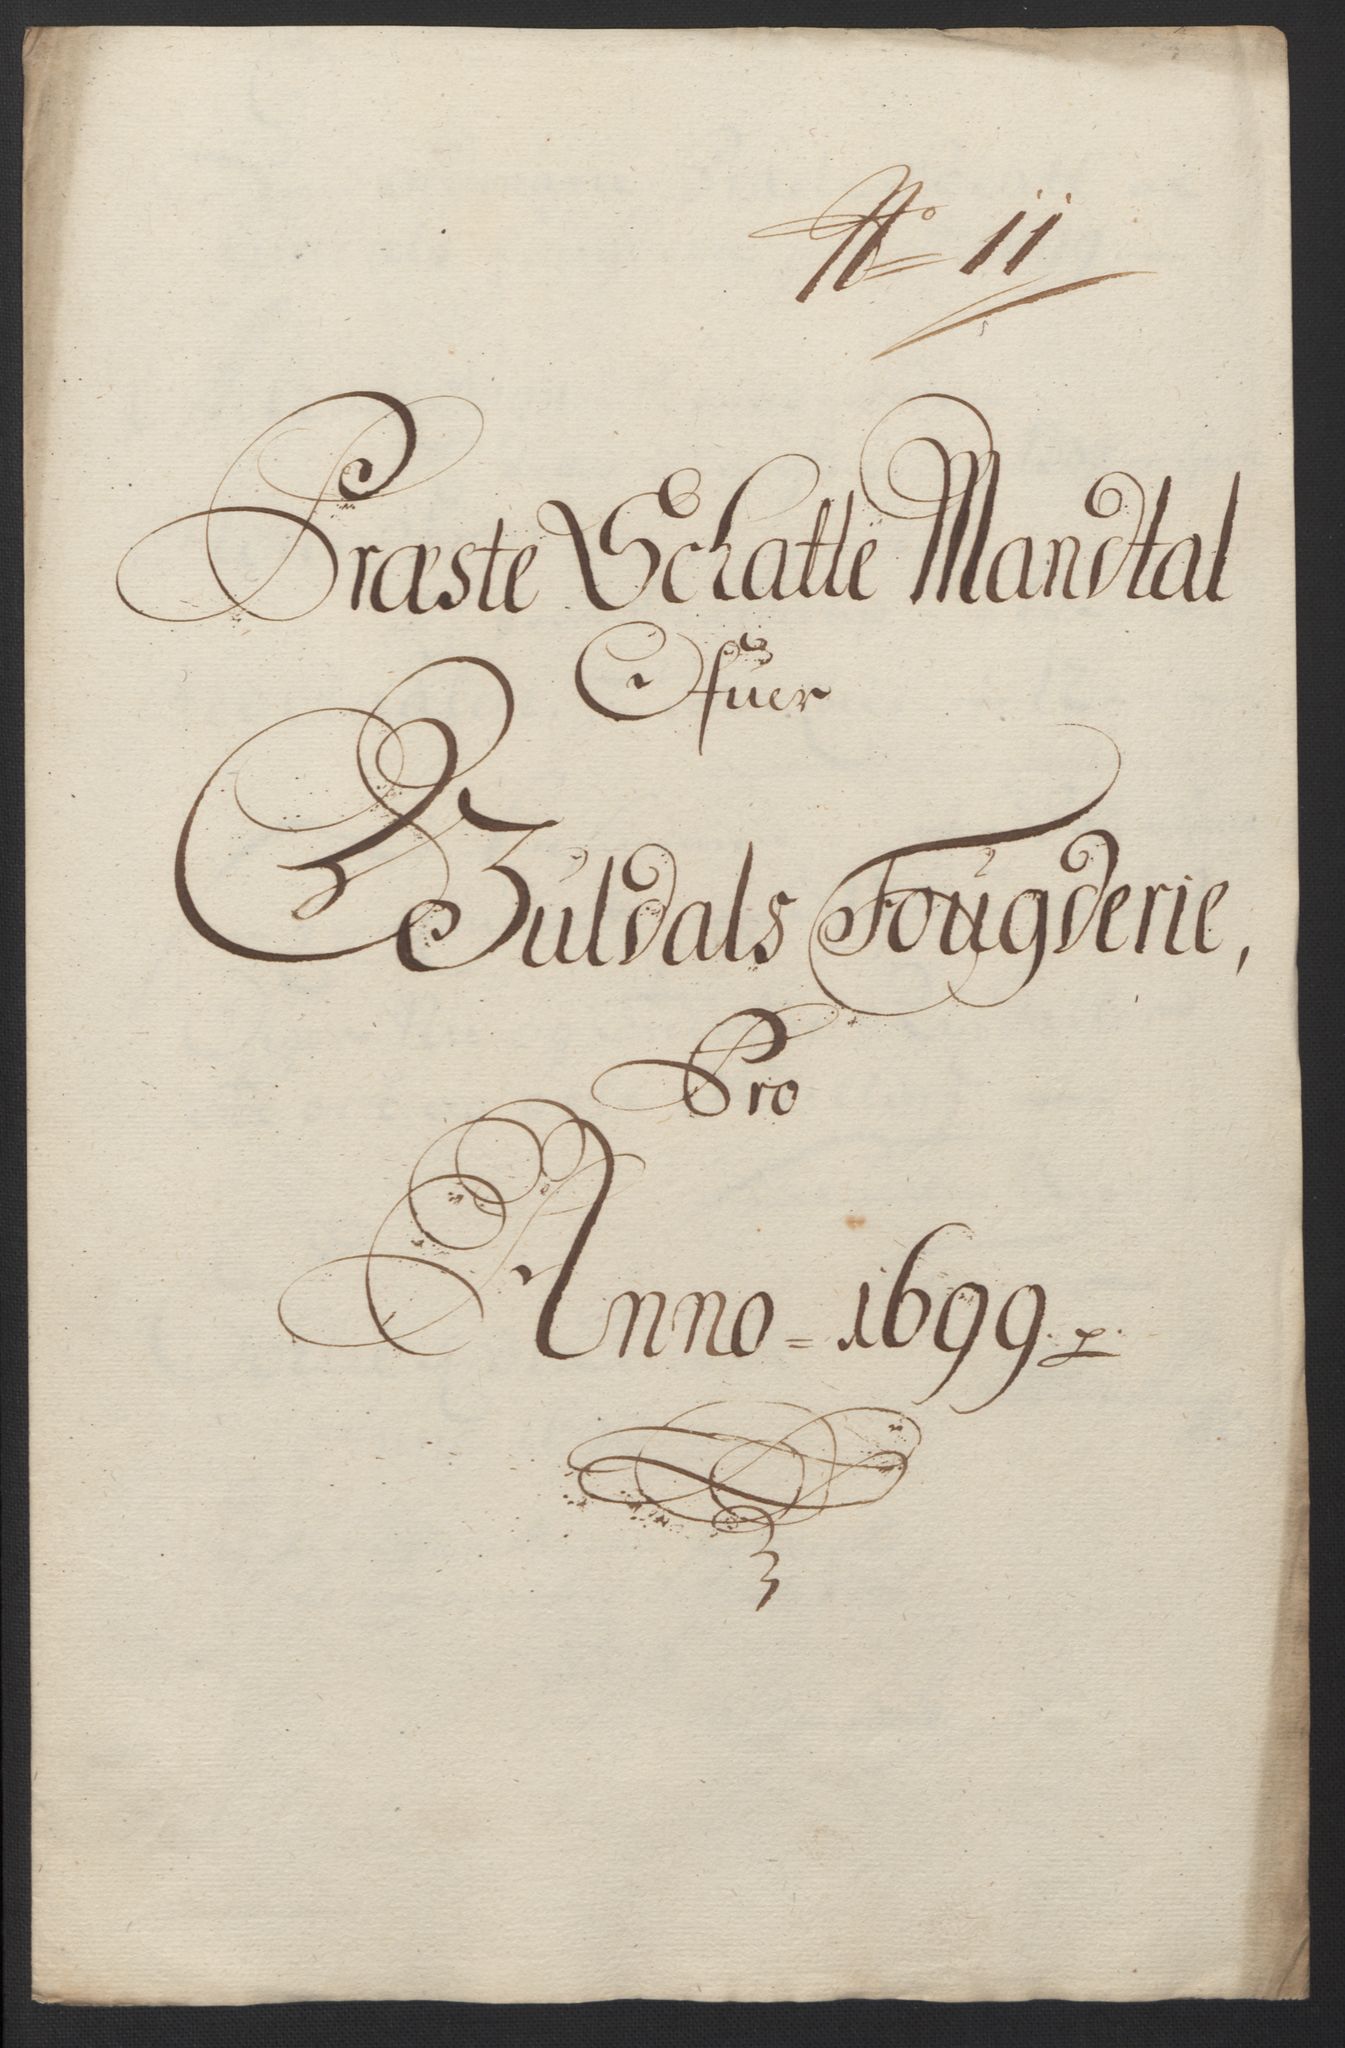 No 11
Præste Schatte Mandtal
Ofuer
Guldals Fougderie,
Pro
Anno = 1699